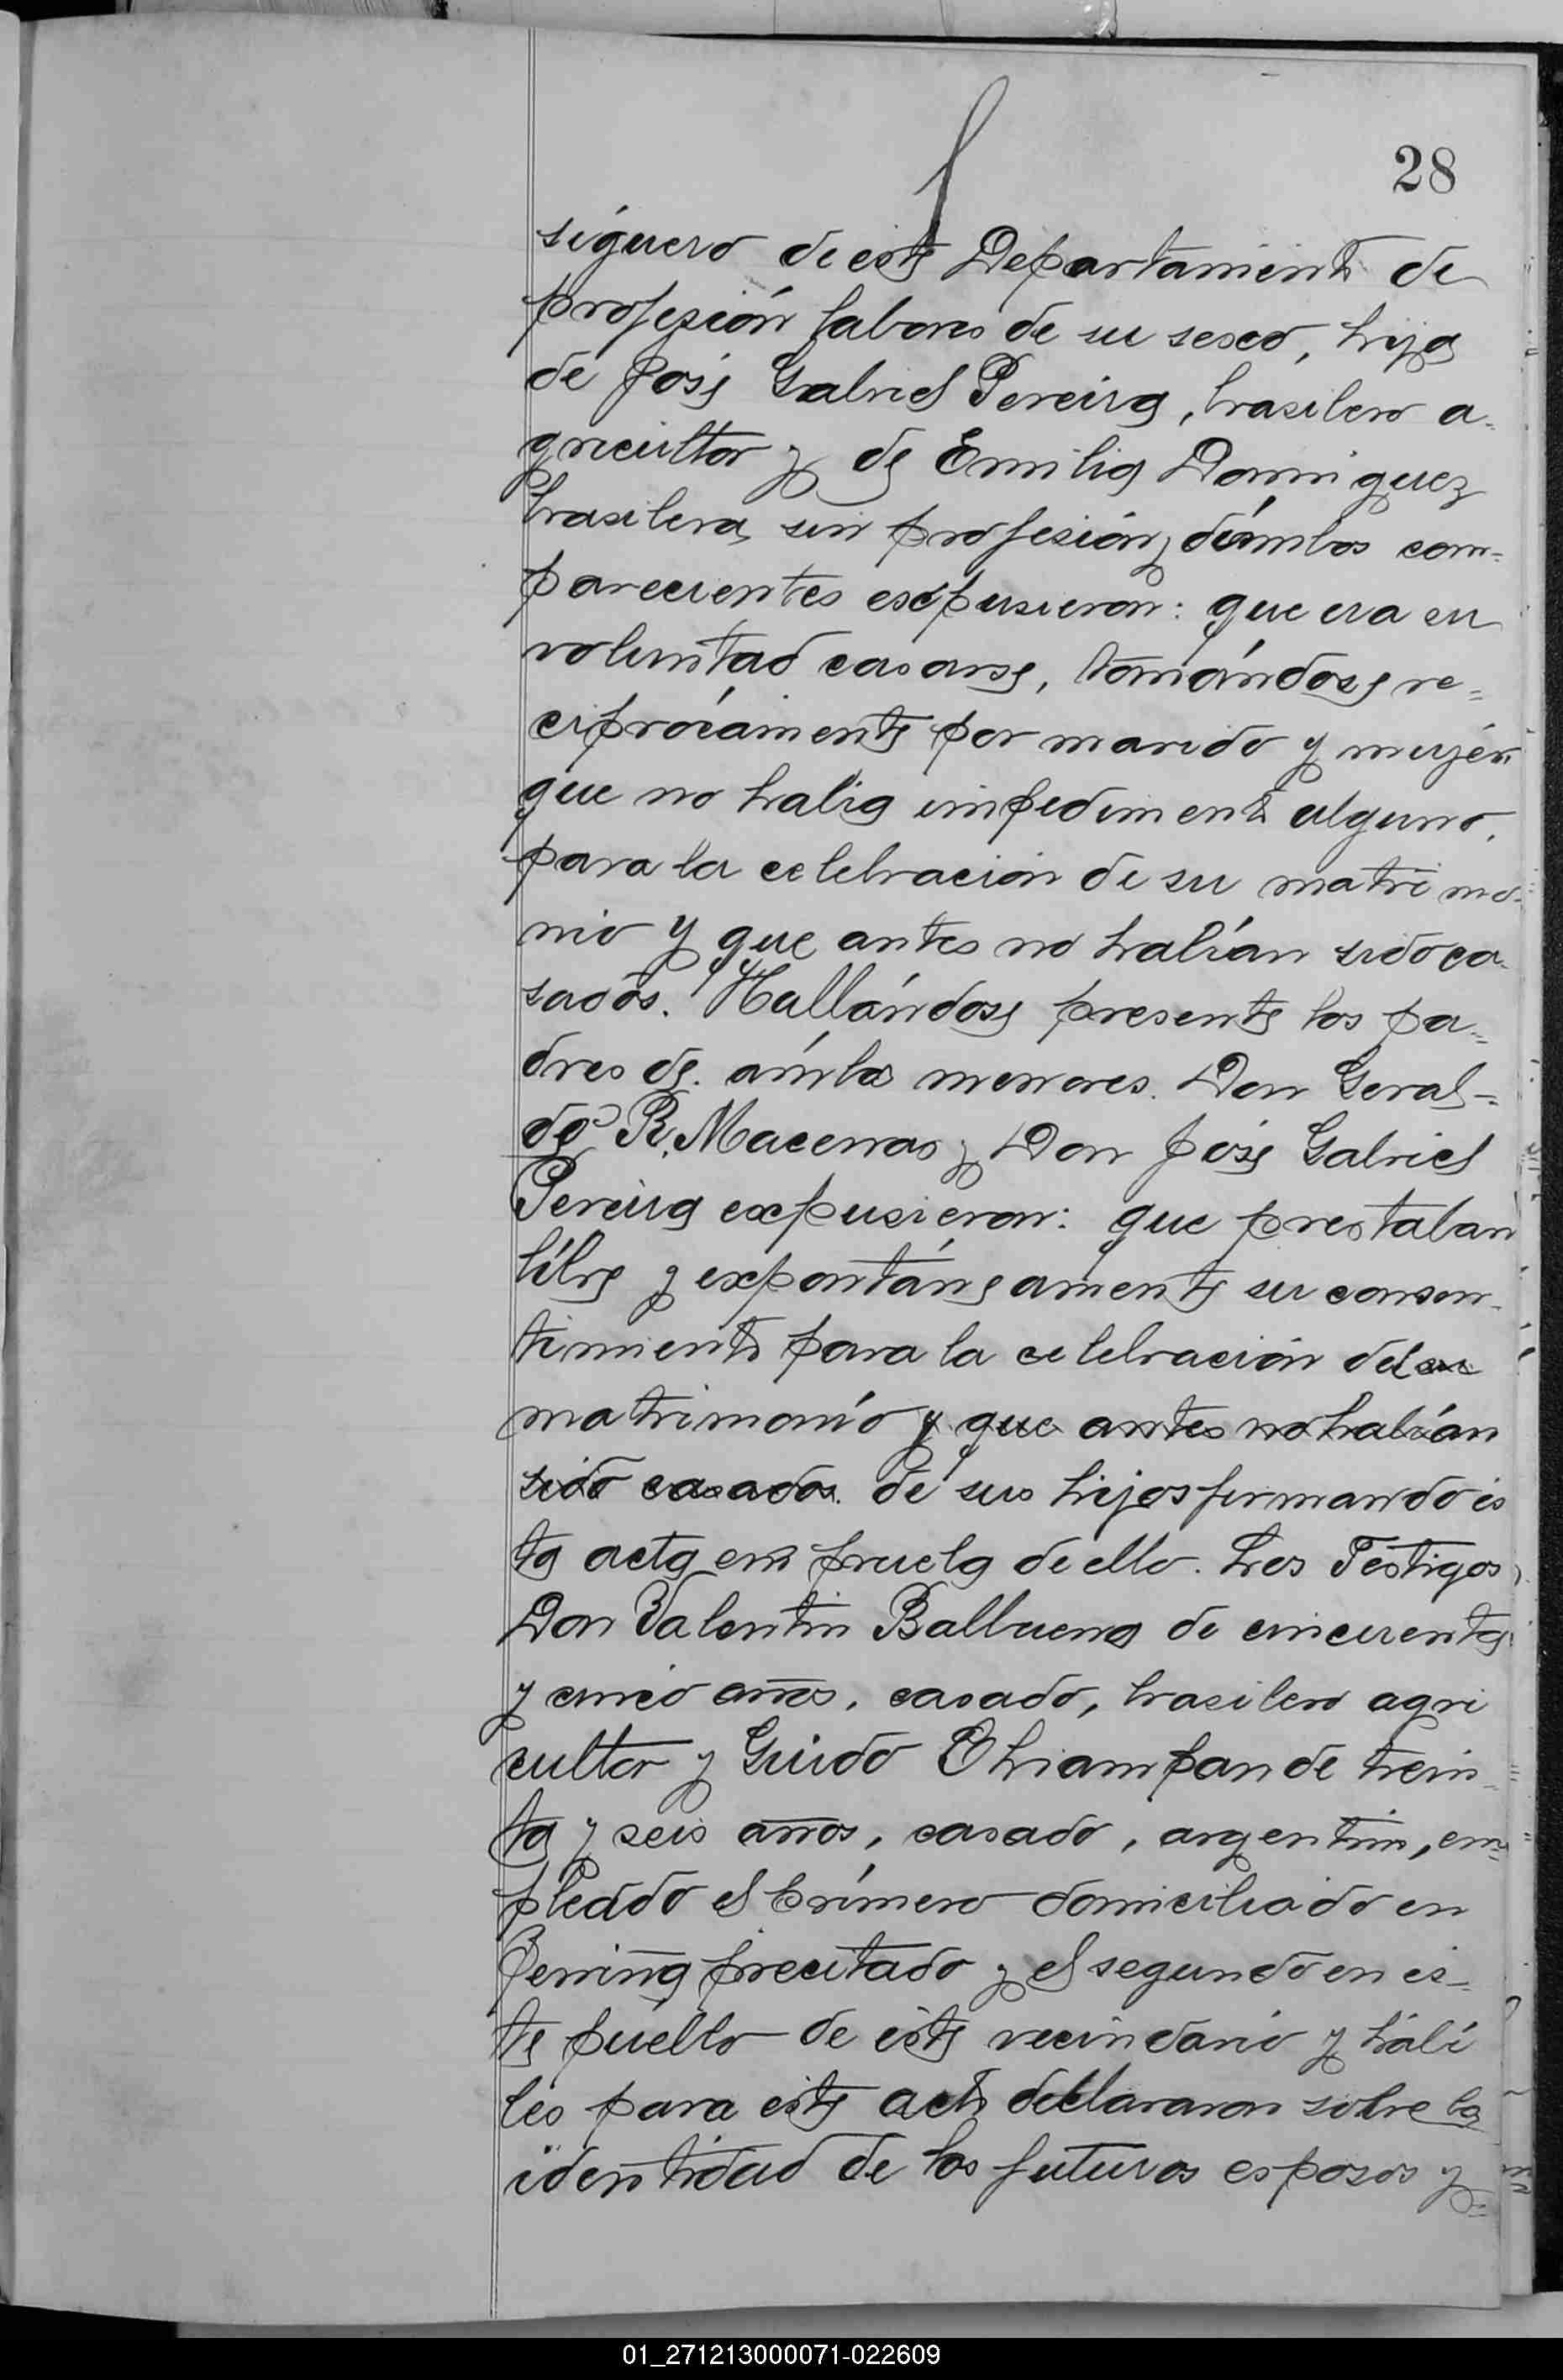 28
siguero de este Departamento de
profesión labores de su sexo, hija
de José Gabriel Pereira, brasilero a-
gricultor y de Emilia Dominguez
brasilera, sin profesión, ámbos com=
parecientes expusieron: que era su
voluntad casarse, tomándose re=
ciprocamente por marido y mujer,
que no habia impedimento alguno,
para la celebración de su matrimo-
nio y que antes no habían sido ca-
sados. Hallándose presente los pa=
dres de ámbos menores. Don Geral-
do R. Macenas y Don José Gabriel
Pereira expusieron: que prestaban
libre y expontáneamente su consen-
timiento para la celebración del su
matrimonio y que antes no habían
sido casados. de sus hijos firmando es
ta acta en prueba de ello. Los Testigos
Don Valentin Balbuena de cincuenta
y cinco años, casado, brasilero agri
cultor y Guido Chiampan de trein-
ta y seis años, casado, argentino, em=
pleado el primero domiciliado en
precitado y el segundo en es-
te pueblo de este vecindario y hábi
les para este acto declararon sobre la
identidad de los futuros esposos y=
01_271213000071-022609